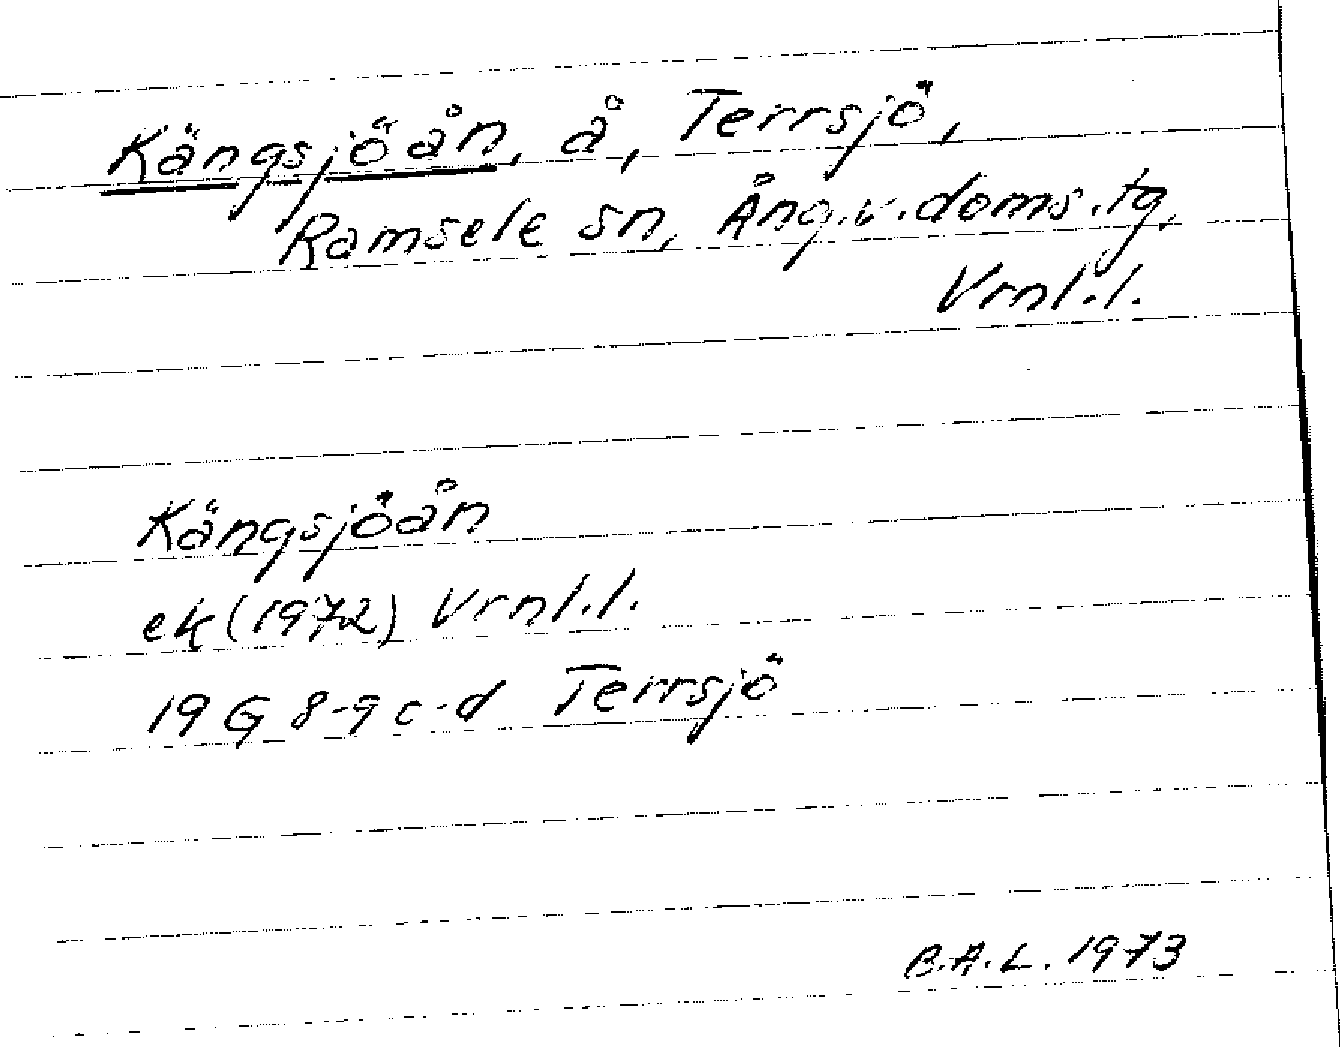 Kängsjöån, å, Terrsjö,
Ramsele sn, Ång.v.doms.tg,
Vrnl.l.
Kängsjöån
ek (1972) Vrnl.l.
19 G 8-9 c-d Terrsjö
B.A.L. 1973